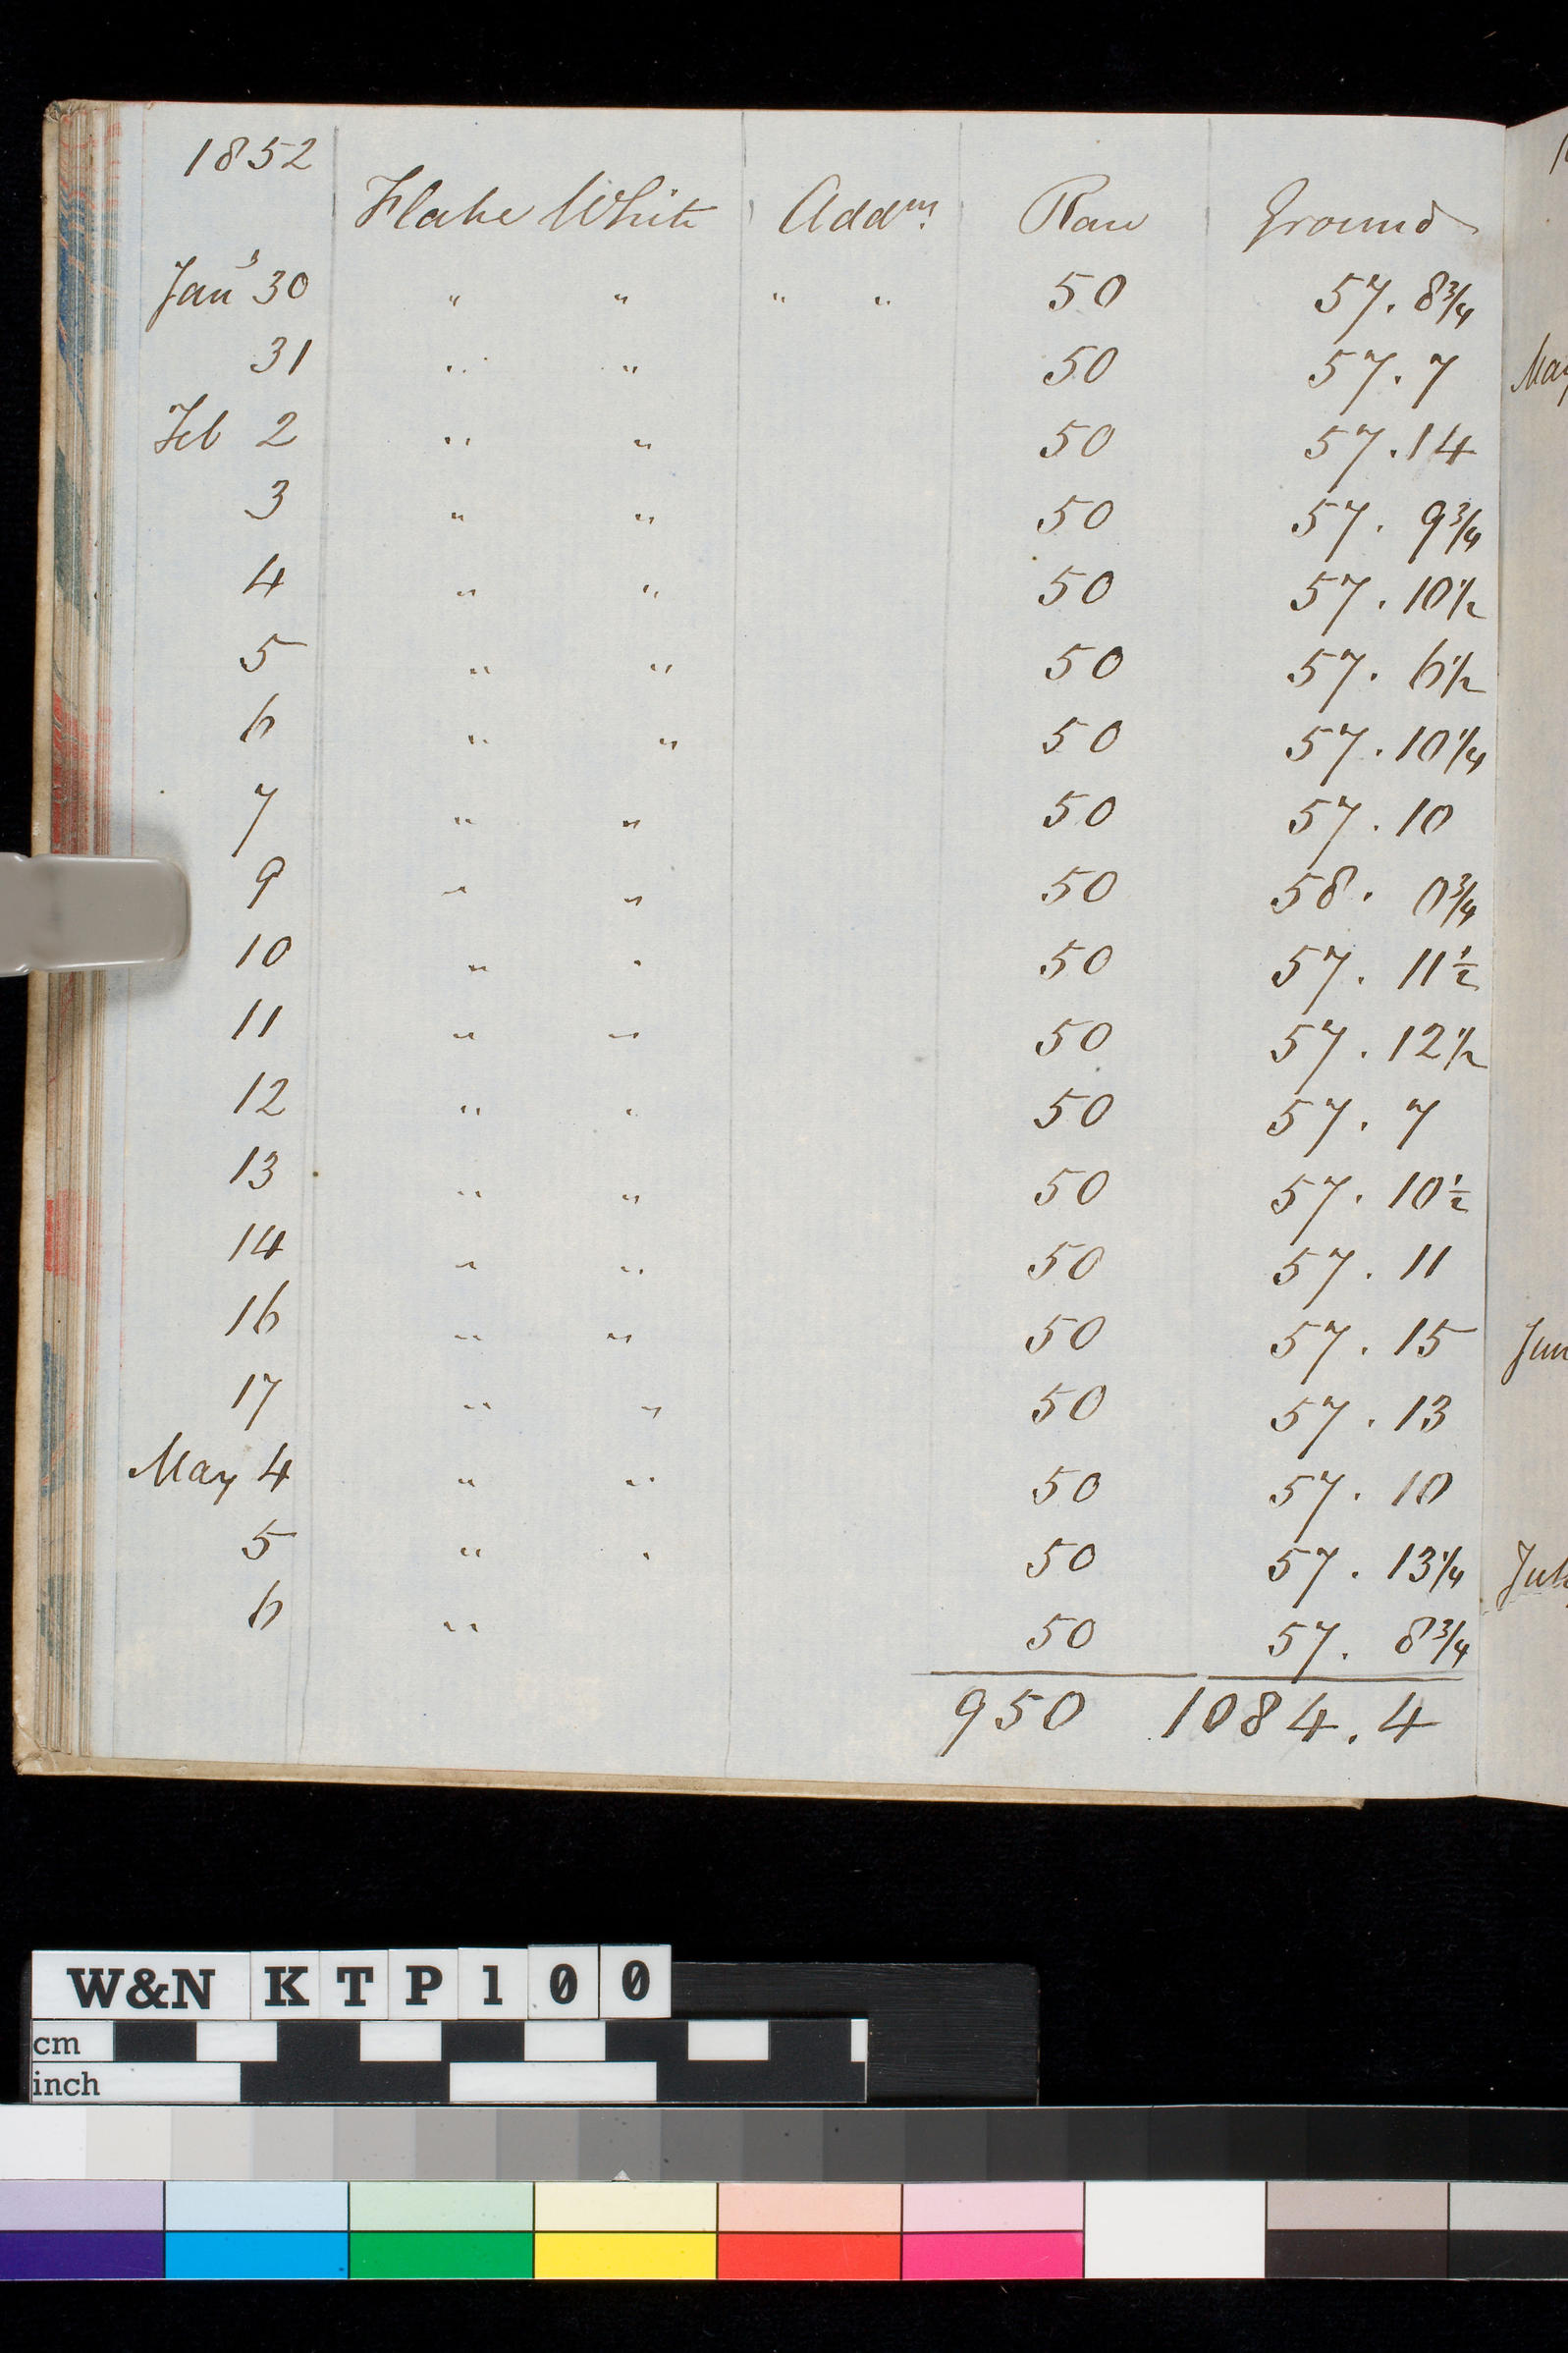 1852
Flake White Addns. Raw Ground
Jany 30 " " " " 50 57. 8 3/4
31 " " 50 57. 7
Feb 2 " " 50 57. 14
3 " " 50 57. 9 3/4
4 " " 50 57. 10 1/2
5 " " 50 57. 6 1/2
6 " " 50 57. 10 1/4
7 " " 50 57. 10
9 " " 50 58. 0 3/4
10 " " 50 57. 11 1/2
11 " " 50 57. 12 1/2
12 " " 50 57. 7
13 " " 50 57. 10 1/2
14 " " 50 57. 11
16 " " 50 57. 15
17 " " 50 57. 13
May 4 " " 50 57. 10
5 " " 50 57. 13 1/4
6 " 50 57. 8 3/4
950 1084. 4
May
W&N KTP100
cm
inch